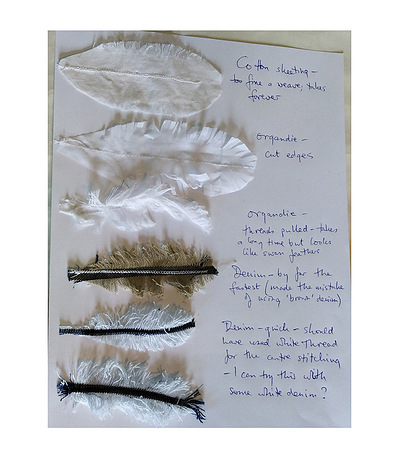 Cotton sheeting -
too fine a weave, takes
forever
organdie -
cut edges
organdie -
threads pulled - takes
a long time but looks
like swan feathers
Denim - by far the
fastest (made the mistake
of using 'brown' denim)
Denim - quick - should
have used white thread
for the centre stitching
- I can try this with
some white denim?